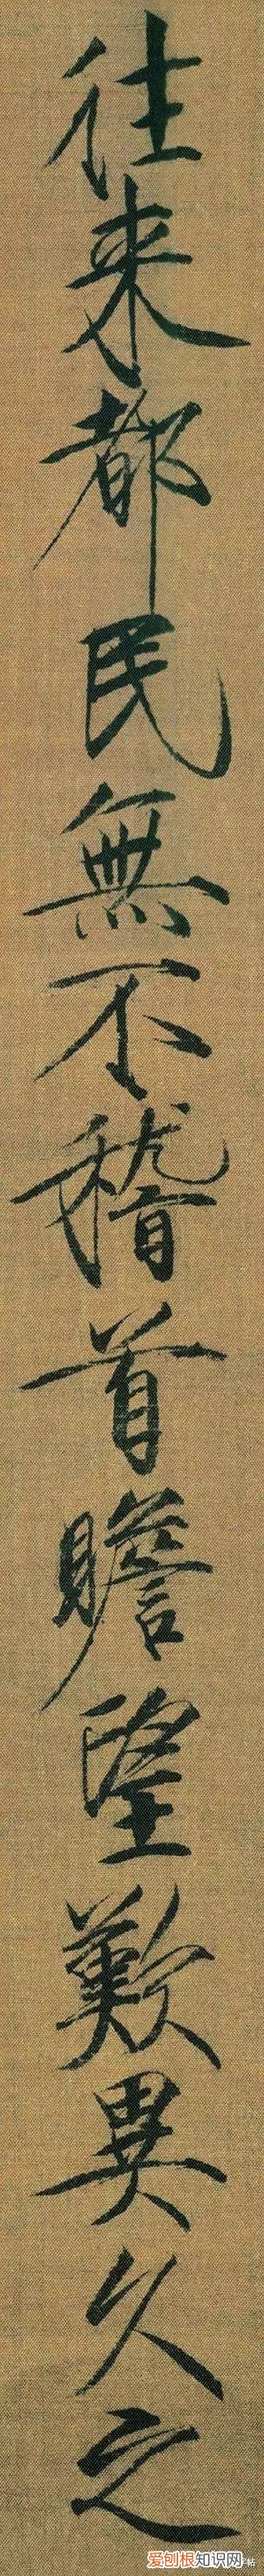 往来都民無不稽首瞻望歎異久之
爱刨根知识网帖